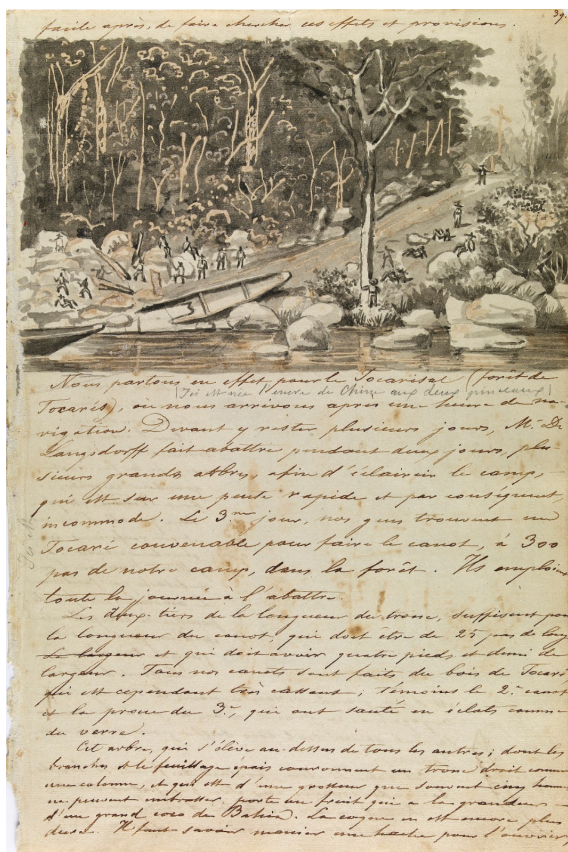 39.
facile après, de faire chercher ces effets et provisions.
Nous partons en effet pour le Tocarisal (forêt de
(Ici est née l'encre de Chine aux deux pinceaux)
Tocaris), où nous arrivons après un heur de na-
vigation. Devant y rester plusieurs jours, M. De
Langsdorff fait abattre pendant deux jours, plu-
sieurs grands arbres, afin d'éclaircir le camp,
qui est sur une pente rapide et par conséquent,
incommode. Le 3me jour, nos gens trouvent un
Tocari convenable pour faire le canot, à 300
pas de notre camp, dans la forêt. Ils emploient
toute la journée à l'abattre.
Les deux tiers de la longueur du tronc, suffisent pour
la longueur du canot, qui doit être de 25 pas de long
et qui doit avoir quatre pieds et demi de
largeur. Tous nos canots sont faits du bois de Tocari
qui est cependant très cassant; témoins le 2.e canot
et la proue du 3.e, qui ont sauté en éclats comme
du verre.
Cet arbre, qui s'élève au-dessus de tous les autres; dont les
branches et le feuillage épais couronnent un tronc droit comme
une colonne, et qui est d'une grosseur que souvent cinq hommes
ne peuvent embrasser, porte un fruit qui a la grandeur
d'un grand coco de Bahia. La coque en est encore plus
dure. Il faut savoir manier une hache pour l'ouvrir,